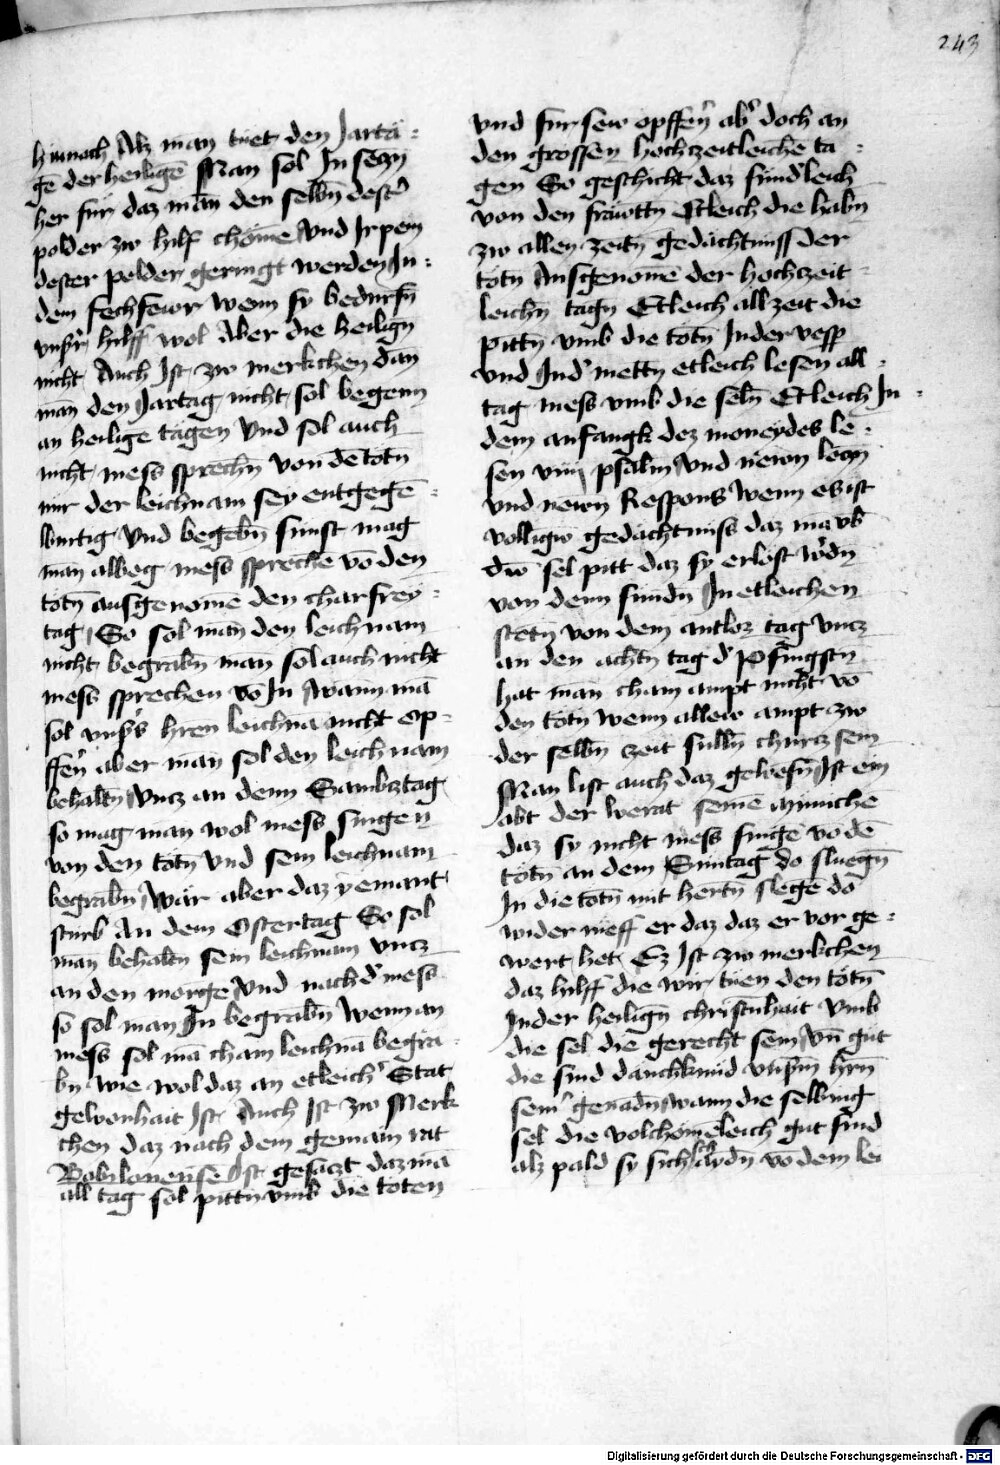 243
hinnach Alz man tuet den Jarta :
gē der heiligē Man sol In seczn
her für daz man den selbn̄ dest'
polder zw hilf chömē Vnd Ir pein
dester polder geringt werden In :
dem fechfewr wenn sy bedurfn̄
vnsr̄ hilff wol Aber die heilign̄
nicht Auch Ist zw merkchen daz
man den Jartag nicht sol begenn
an heiligē tagen Vnd sol auch
nicht mess sprechn̄ von dē totn̄
nur der leichnam sey entgegē :
burtig Vnd begebn̄ sunst mag
man albeg mess sprechē vō den
totn̄ ausgenomē den charfrey :
tag So sol man den leichnam
nicht begrabn̄ man sol auch nicht
mess sprechen vō In Wann mā
sol vnss hren leichna nicht op :
ffn̄ aber man sol den leichnam
behaltn̄ Vncz an denn Sambztag
so mag man wol mess singen
von den totn̄ Vnd sein leichnam
begrabn̄ Wär aber daz yemant
sturb An dem Ostertag So sol
man behaltn sein leichnam vncz
an den morgē Vnd nach d' mess
so sol man In begrabn̄ Wenn an
mess sol mā cham leichnā begra :
bn wie wol daz an etleich' Stat
gewonhait Ist Auch Ist zw Merk
chen daz nach dem gemain rat
Bobilonensē Ist gesaczt daz mā
all tag sol pittn̄ vmb die toten
vnd für sew opffn̄ ab' doch an
den grossen hochzeitleichē ta :
gen So geschicht daz sund'leich
von den frawttn̄ Etleich die habn̄
zw allen zeitn̄ gedächtnuss der
totn̄ Ausgenomē der hochzeit :
leichn̄ tagn̄ Etleich allzeit die
pittn̄ vmb die totn̄ In der vesp
vnd In d' mettn̄ etleich lesen all :
tag mess vmb die seln̄ Etleich In :
dem anfangk dez moneydes le :
sen viiij psalm Vnd newn leczn̄
vnd newn Respons Wenn es ist
volligw gedächtnuss daz ma vb'
dw sel pitt daz sy erlost w'dn̄
von denn sundn̄ In etleichen
stetn̄ von dem antlaz tag vncz
an den achtn̄ tag d' Pfingstn̄
hat man cham ampt nicht vō
den totn̄ Wenn allew ampt zw
der selbn̄ zeit sulln̄ churcz sein
Man list auch daz gewesn̄ Ist ein
abt der werat seinē münichē
daz sy nicht mess singē vō dē
totn̄ an dem Suntag do sluegn̄
In die totn̄ mit hertn̄ slegē do
wider rueff er daz daz er vor ge :
wert het Ez Ist zw merkchen
daz hilff die wir tuen den totn̄
In der heilign̄ christnhait Vmb
die sel die gerecht sein Vn̄ gut
die sind danchkund vnsm̄ hrn̄
sein' genadn̄ Wann die selbing
sel die volchömēleich gut sind
alz pald sy sich w'dn̄ vō dem lei
Digitalisierung gefördert durch die Deutsche Forschungsgemeinschaft - DFG